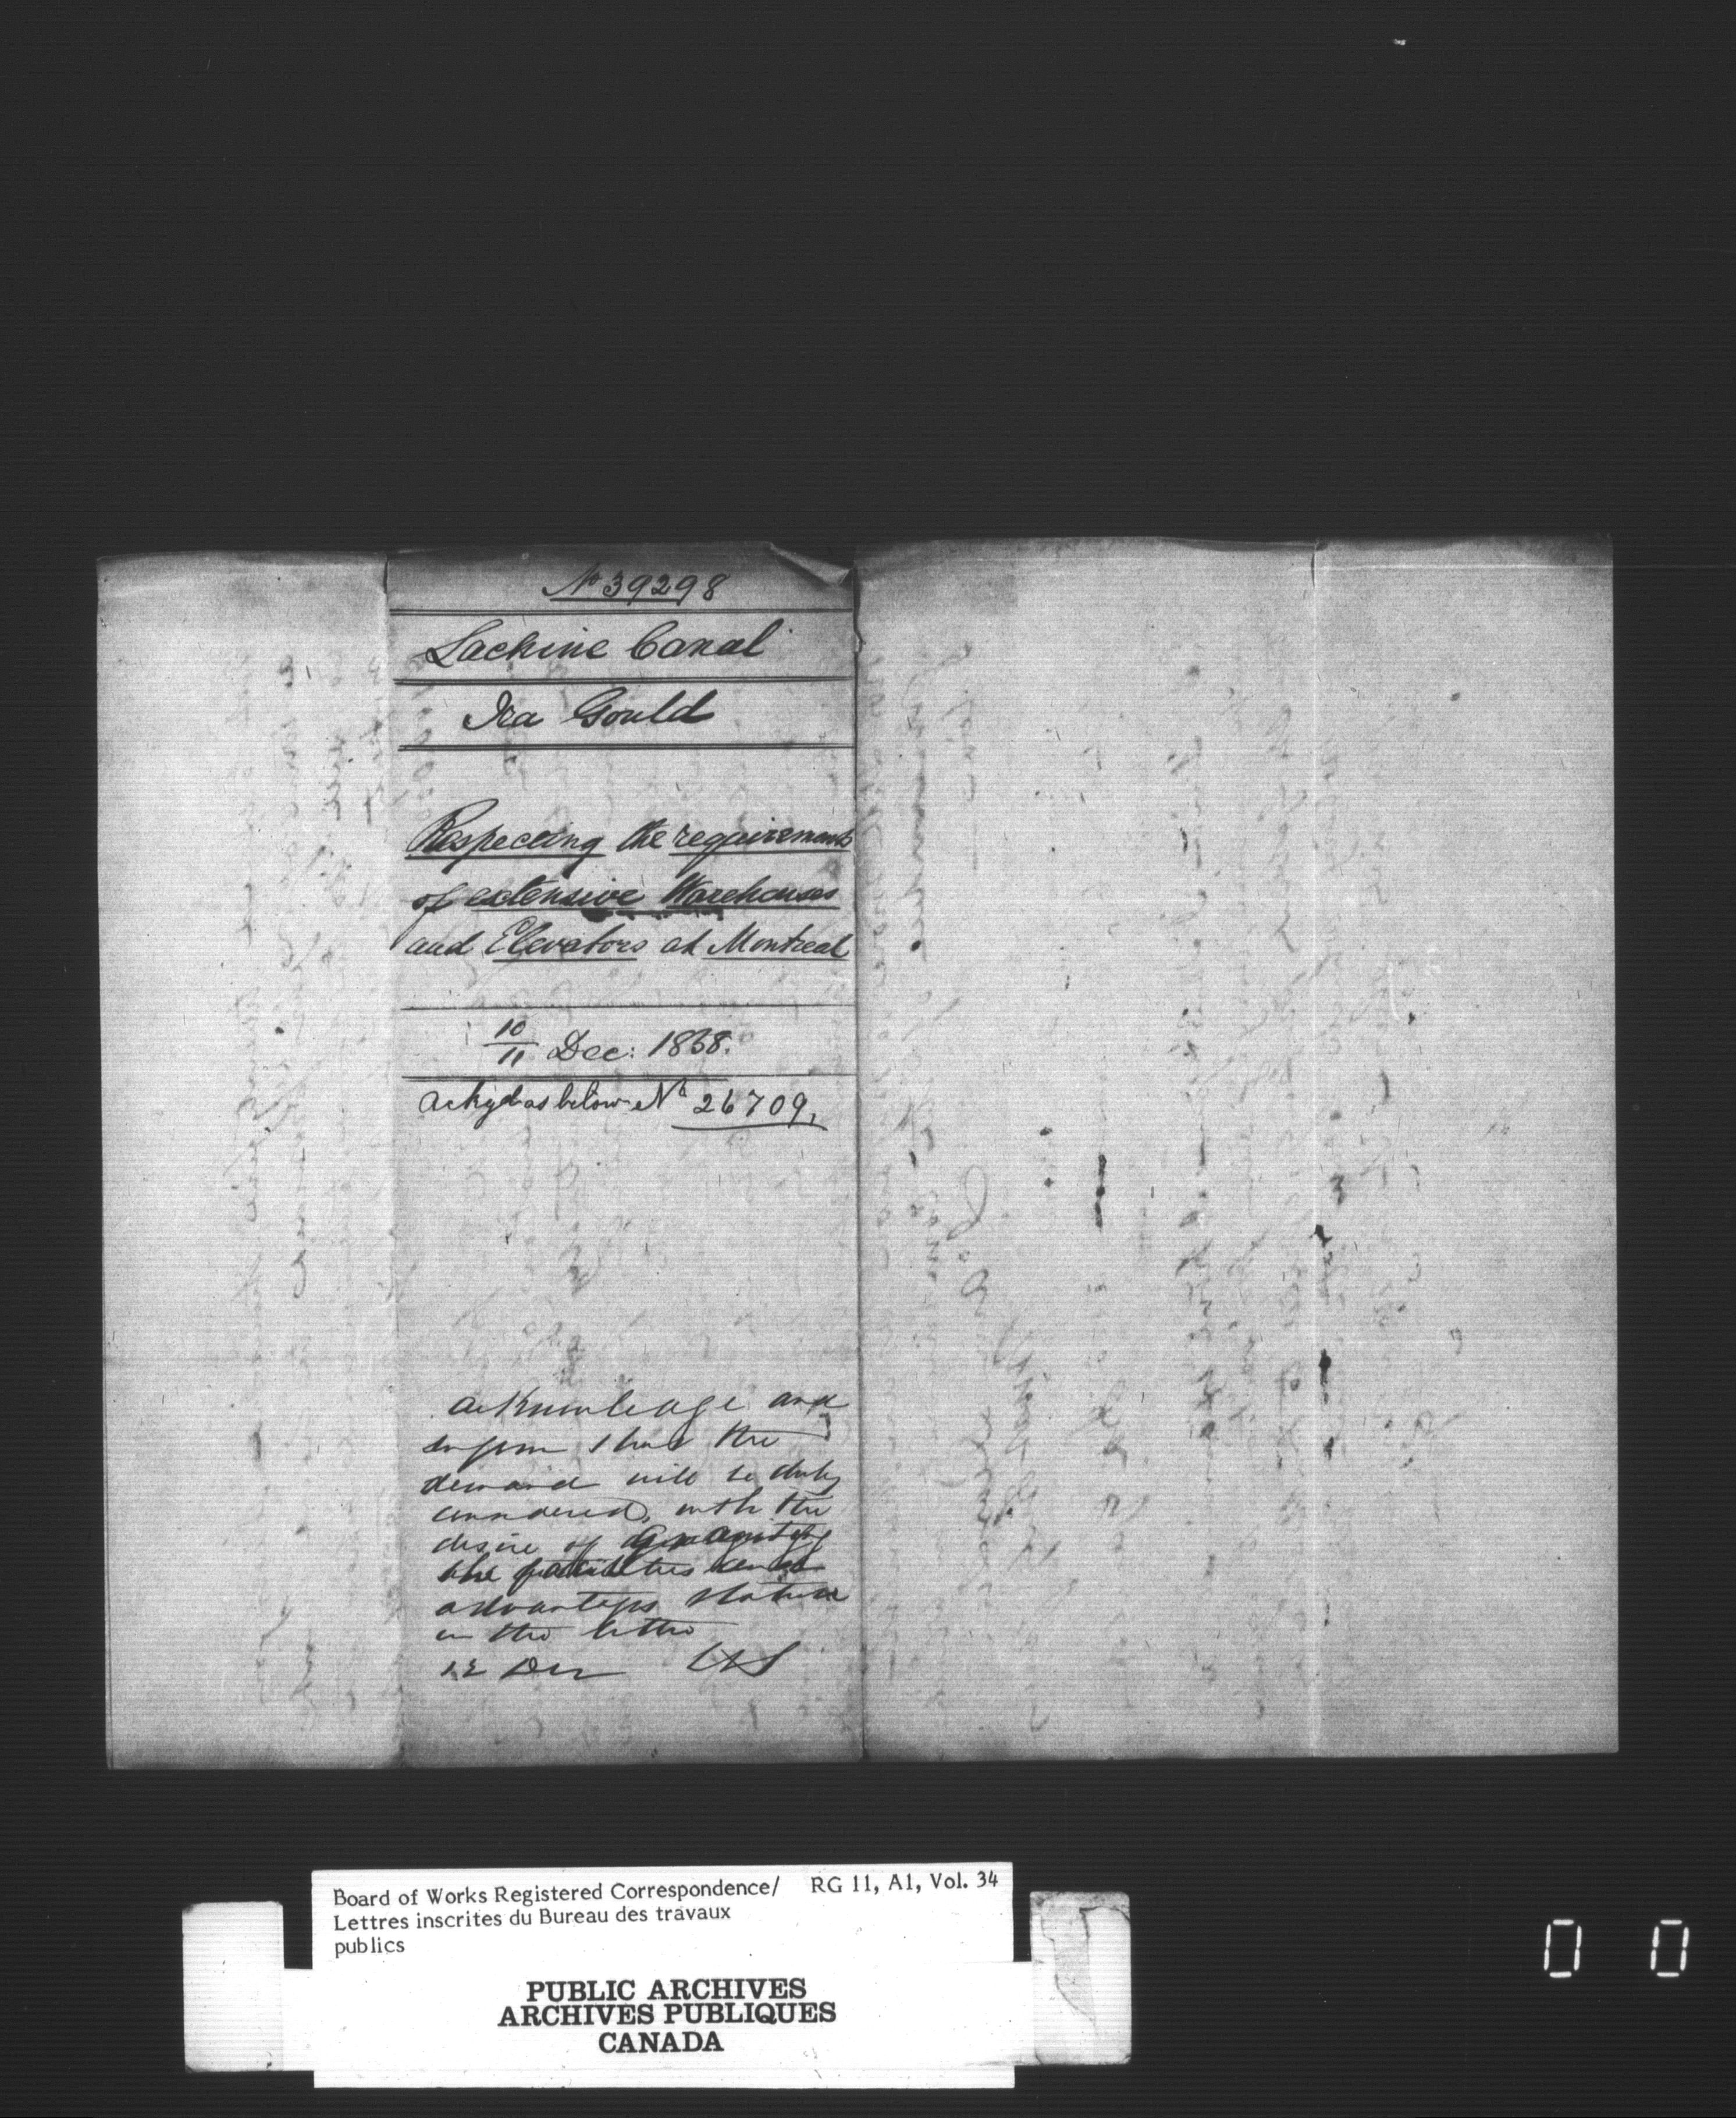 No 39298
Lachine Canal
Ira Gould
Respecting the requirements
of extensive Warehouses
and Elevators at Montreal
10
11 Dec: 1868.
Ackgd as below No 26709.
acknowledge and
inform that the
demand will be duly
considered, with the
desire of
the facilities and
advantages stated
in the letter
12 Dec
Board of Works Registered Correspondence/ RG 11, A1, Vol. 34
Lettres inscrites du Bureau des travaux
publics
PUBLIC ARCHIVES
ARCHIVES PUBLIQUES
CANADA
0 0